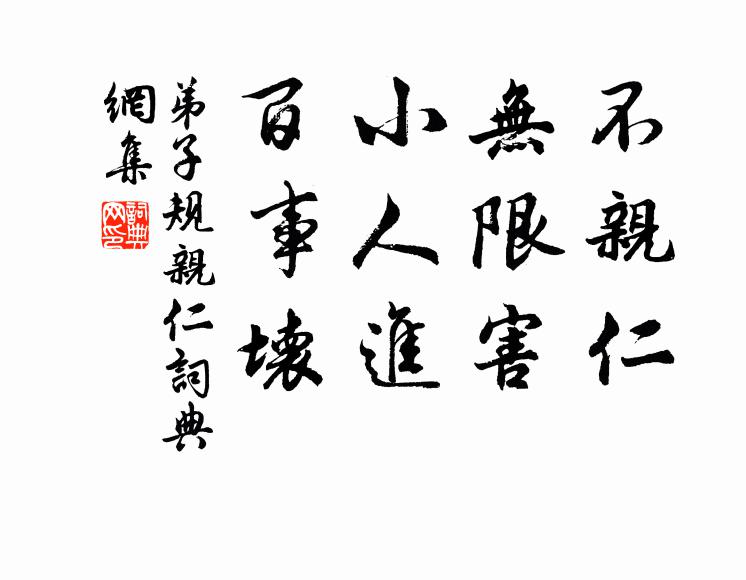 不親仁
無限害
小人進
百事壞
弟子規親仁詞典
網集
詞典
网印